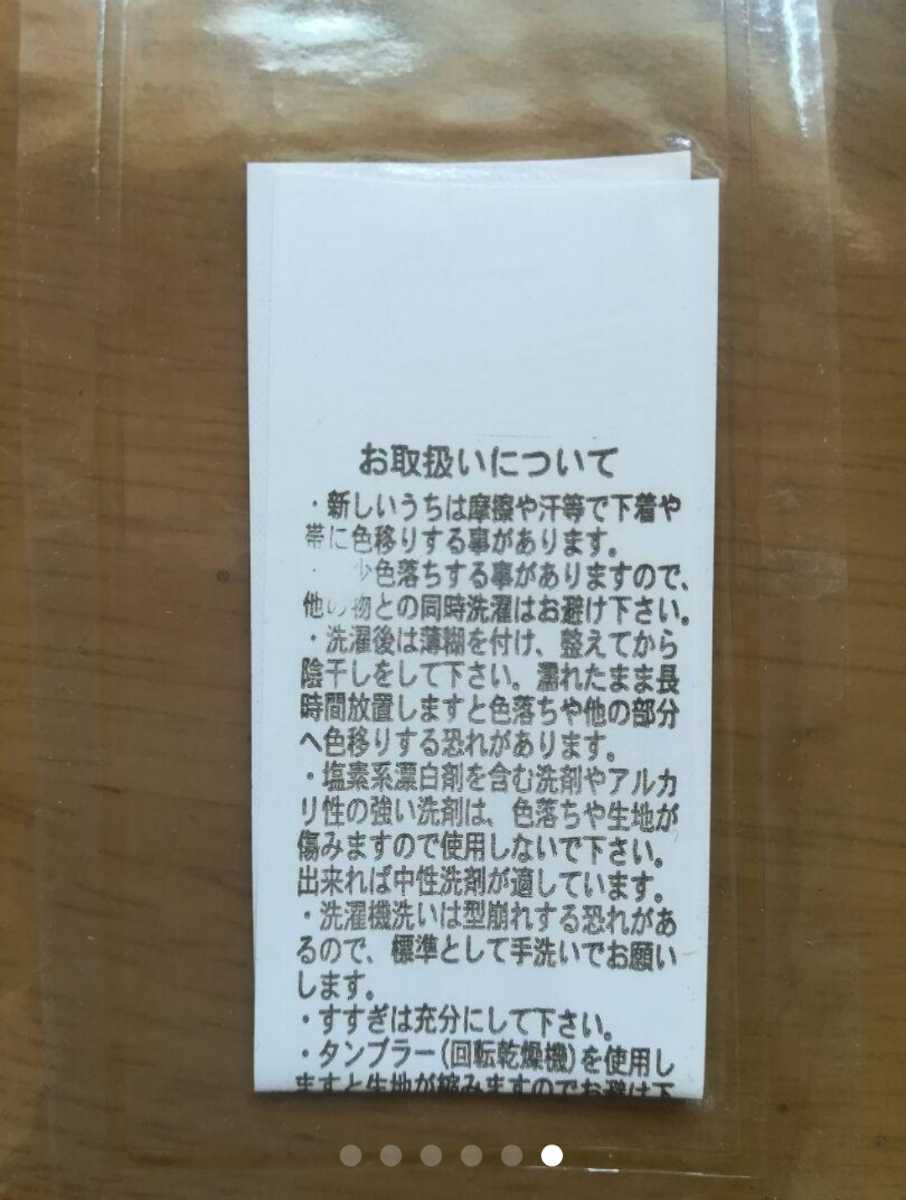 お取扱いについて
・新しいうちは摩擦や汗等で下着や
帯に色移りする事があります。
・ 少色落ちする事がありますので、
他の物との同時洗濯はお避け下さい。
・洗濯後は薄糊を付け、整えてから
陰干しをして下さい。濡れたまま長
時間放置しますと色落ちや他の部分
へ色移りする恐れがあります。
・塩素系漂白剤を含む洗剤やアルカ
リ性の強い洗剤は、色落ちや生地が
傷みますので使用しないで下さい。
出来れば中性洗剤が適しています。
・洗濯機洗いは型崩れする恐れがあ
るので、標準として手洗いでお願い
します。
・すすぎは充分にして下さい。
・タンブラー(回転乾燥機)を使用し
ますと生地が縮みますのでお避け下